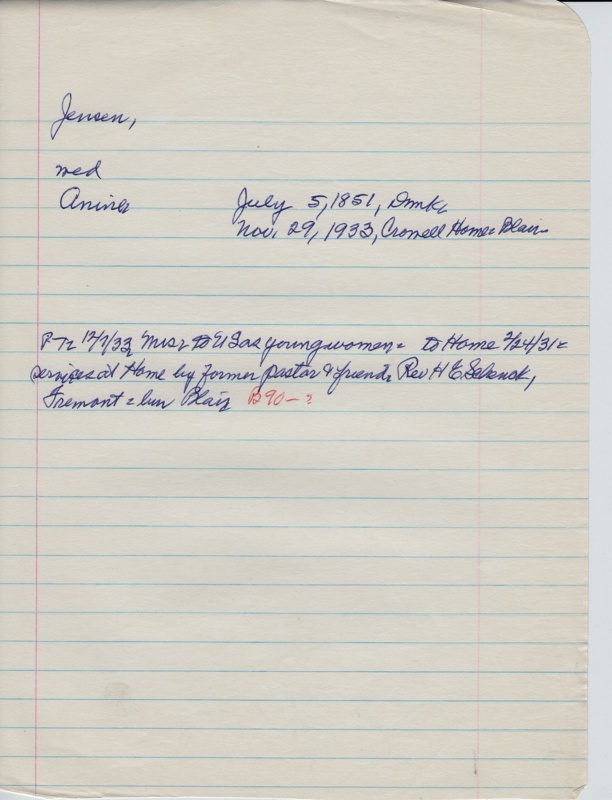 Jensen,
med
Anina July 5, 1851, Dmk.
Nov. 29, 1933, Crowell Home = Blair =
P-T= 12/7/33, Miss = to U S as young women = to Home 2/24/31 =
services at Home by former pastor & friend, Rev H E
Fremont = bur Blair B90-?